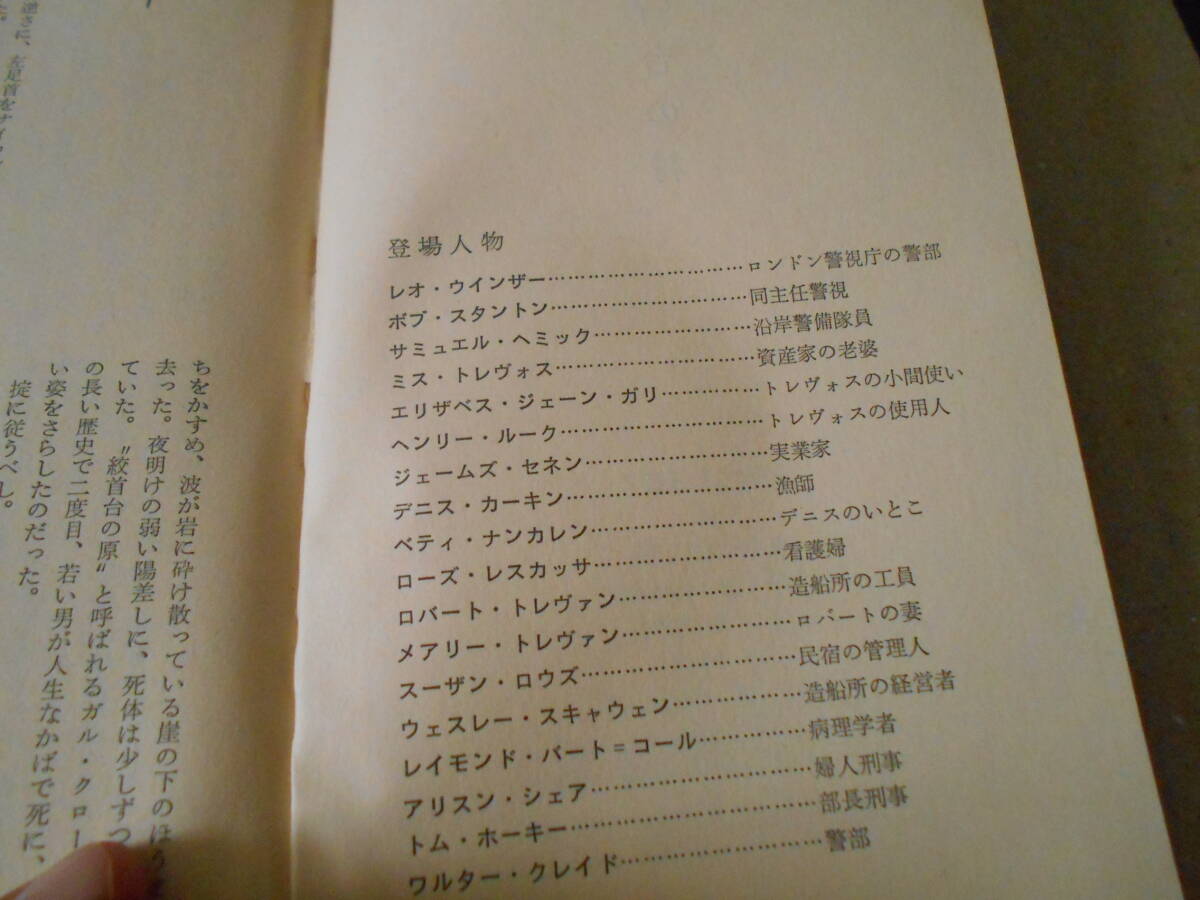 登場人物
レオ・ウインザー…………………………ロンドン警視庁の警部
ボブ・スタントン…………………………同主任警視
サミュエル・ヘミック……………………沿岸警備隊員
ミス・トレヴォス…………………………資産家の老婆
エリザベス・ジェーン・ガリ……………トレヴォスの小間使い
ヘンリー・ルーク…………………………トレヴォスの使用人
ジェームズ・セネン………………………実業家
デニス・カーキン…………………………漁師
ベティ・ナンカレン………………………デニスのいとこ
ローズ・レスカッサ………………………看護婦
ロバート・トレヴァン……………………造船所の工員
メアリー・トレヴァン……………………ロバートの妻
スーザン・ロウズ…………………………民宿の管理人
ウェスレー・スキャウェン………………造船所の経営者
レイモンド・バート＝コール……………病理学者
アリスン・シェア…………………………婦人刑事
トム・ホーキー……………………………部長刑事
ワルター・クレイド………………………警部
ちをかすめ、波が岩に砕け散っている崖の下のほう
去った。夜明けの弱い陽差しに、死体は少しずつ
ていた。〝絞首台の原〟と呼ばれるガル・クロー
の長い歴史で二度目、若い男が人生なかばで死に、
い姿をさらしたのだった。
掟に従うべし。
逆さに、左足首を
た。